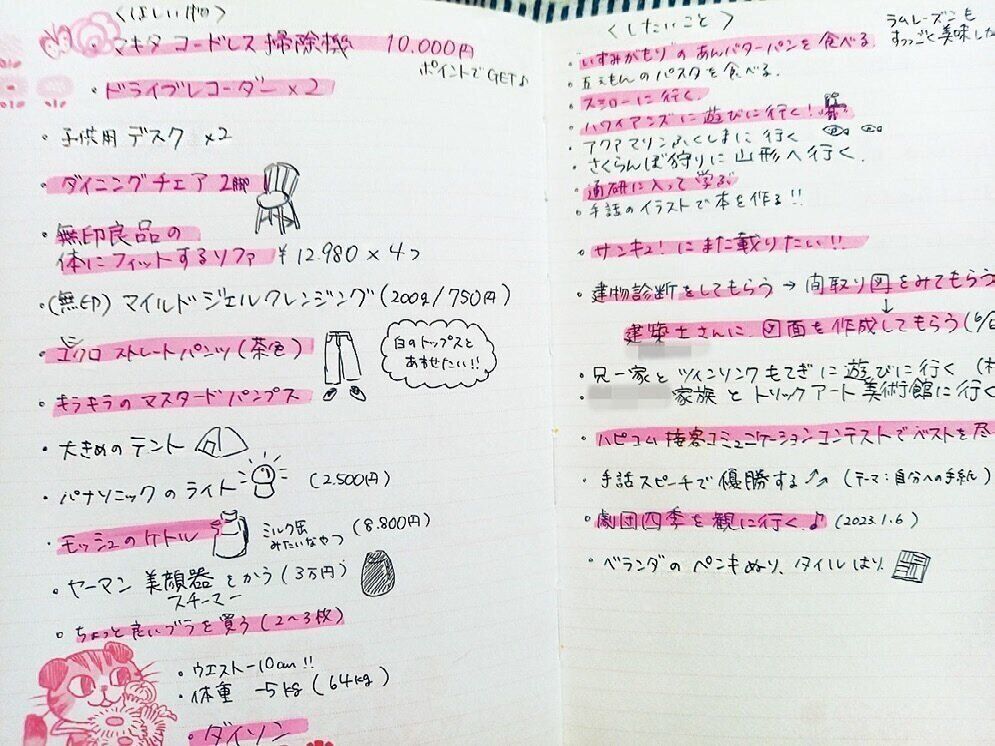 <ほしいもの>
・マキタ コードレス 掃除機 10.000円
ポイントでGET♪
・ドライブレコーダー×2
・子供用 デスク ×2
・ダイニングチェア 2脚
・無印良品の
体にフィットするソファ ¥12.980×4つ
・(無印) マイルドジェルクレンジング(200g/750円)
・ユニクロ ストレートパンツ(茶色)
白のトップスと
あわせたい!!
・キラキラのマスタードパンプス
・大きめのテント
・パナソニックのライト (2.500円)
・モッシュのケトル ミルク缶
みたいなやつ (8.800円)
・ヤーマン 美顔器をかう(3万円)
スチーマー
・ちょっと良いブラを買う(2〜3枚)
・ウエスト-10cm!!
・体重 -5kg(64kg)
・ダイソン
<したいこと>
ラムレーズンも
すっごく美味した
・いずみがもりのあんバターパンを食べる.
・五えもんのパスタを食べる.
・スシローに行く.
・ハワイアンズに遊びに行く!
・アクアマリンふくしまに行く
・さくらんぼ狩りに山形へ行く.
・通研に入って学ぶ
・手話のイラストで本を作る!!
・サンキュ!にまた載りたい!!
・建物診断をしてもらう→間取り図をみてもらう
↓
建築士さんに図面を作成してもらう
・兄一家とツインリンクもてぎに遊びに行く
・家族とトリックアート美術館に行く
・ハピコム接客コミュニケーションコンテストでベストを尽
・手話スピーチで優勝する (テーマ:自分への手紙)
・劇団四季を観に行く♪ (2023.1.6)
・ベランダのペンキぬり、タイルはり